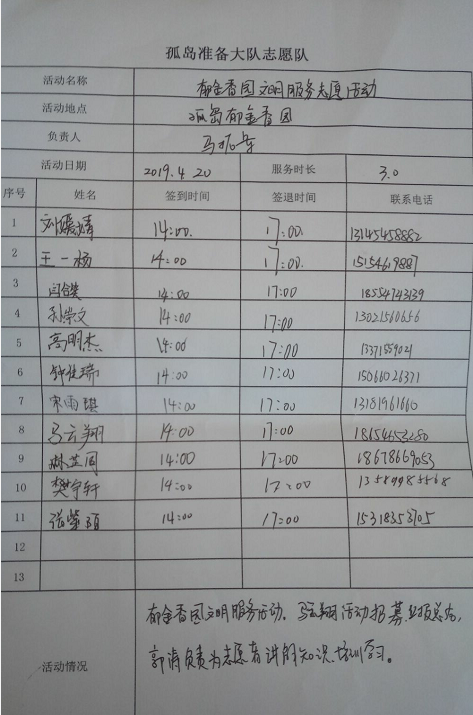 孤岛准备大队志愿队
活动名称 郁金香园文明服务志愿活动
活动地点 孤岛郁金香园
负责人 马拓岸
活动日期 2019.4.20 服务时长 3.0
序号 姓名 签到时间 签退时间 联系电话
1 刘媛婧 14:00. 17:00. 13145458882
2 王一杨 14:00 17:00. 15154619887
3 14:00 17:00 18554743139
4 孙崇文 14:00 17:00 13021560656
5 高明杰 14:00 17:00 13371559021
6 钟佳瑞 14:00 17:00 15066026371
7 宋雨琪 14:00 17:00 13181961660
8 马云翔 14:00 17:00 18654653280
9 14:00 17:00 18678669053
10 樊宇轩 14:00 17:00
11 张肇硕 14:00 17:00 15318353705
12
13
郁金香园文明服务活动。马云翔活动招募、上报总结,
活动情况 郭涛负责为志愿者讲解知识、培训学习。